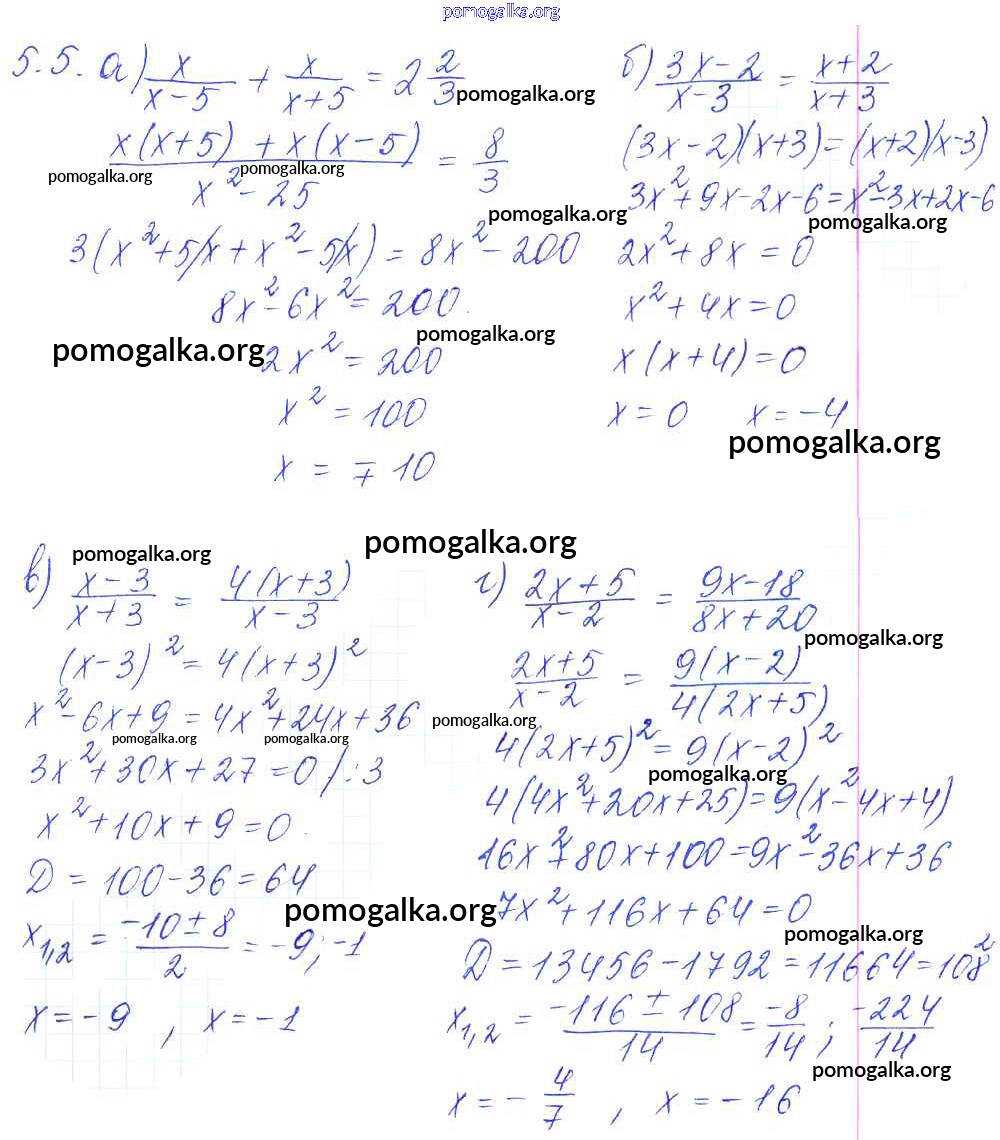 pomogalka.org
5.5. а) x/(x-5) + x/(x+5) = 2 2/3
pomogalka.org
(x(x+5) + x(x-5))/(x²-25) = 8/3
pomogalka.org
pomogalka.org
pomogalka.org
3(x²+5x+x²-5x) = 8x²-200
8x²-6x²=200.
pomogalka.org
pomogalka.org
2x²=200
x²=100
x = ∓10
б) (3x-2)/(x-3) = (x+2)/(x+3)
(3x-2)(x+3)=(x+2)(x-3)
3x²+9x-2x-6=x²-3x+2x-6
pomogalka.org
2x²+8x=0
x²+4x=0
x(x+4)=0
x=0 x=-4
pomogalka.org
pomogalka.org
pomogalka.org
в) (x-3)/(x+3) = 4(x+3)/(x-3)
(x-3)²=4(x+3)²
x²-6x+9=4x²+24x+36
pomogalka.org
pomogalka.org
pomogalka.org
3x²+30x+27=0 /:3
x²+10x+9=0.
D=100-36=64
pomogalka.org
x₁,₂ = (-10±8)/2 = -9; -1
x=-9 , x=-1
г) (2x+5)/(x-2) = (9x-18)/(8x+20)
pomogalka.org
(2x+5)/(x-2) = 9(x-2)/4(2x+5)
4(2x+5)²=9(x-2)²
pomogalka.org
4(4x²+20x+25)=9(x²-4x+4)
16x²+80x+100=9x²-36x+36
7x²+116x+64=0
pomogalka.org
D=13456-1792=11664=108²
x₁,₂ = (-116±108)/14 = -8/14; -224/14
pomogalka.org
x=-4/7 , x=-16